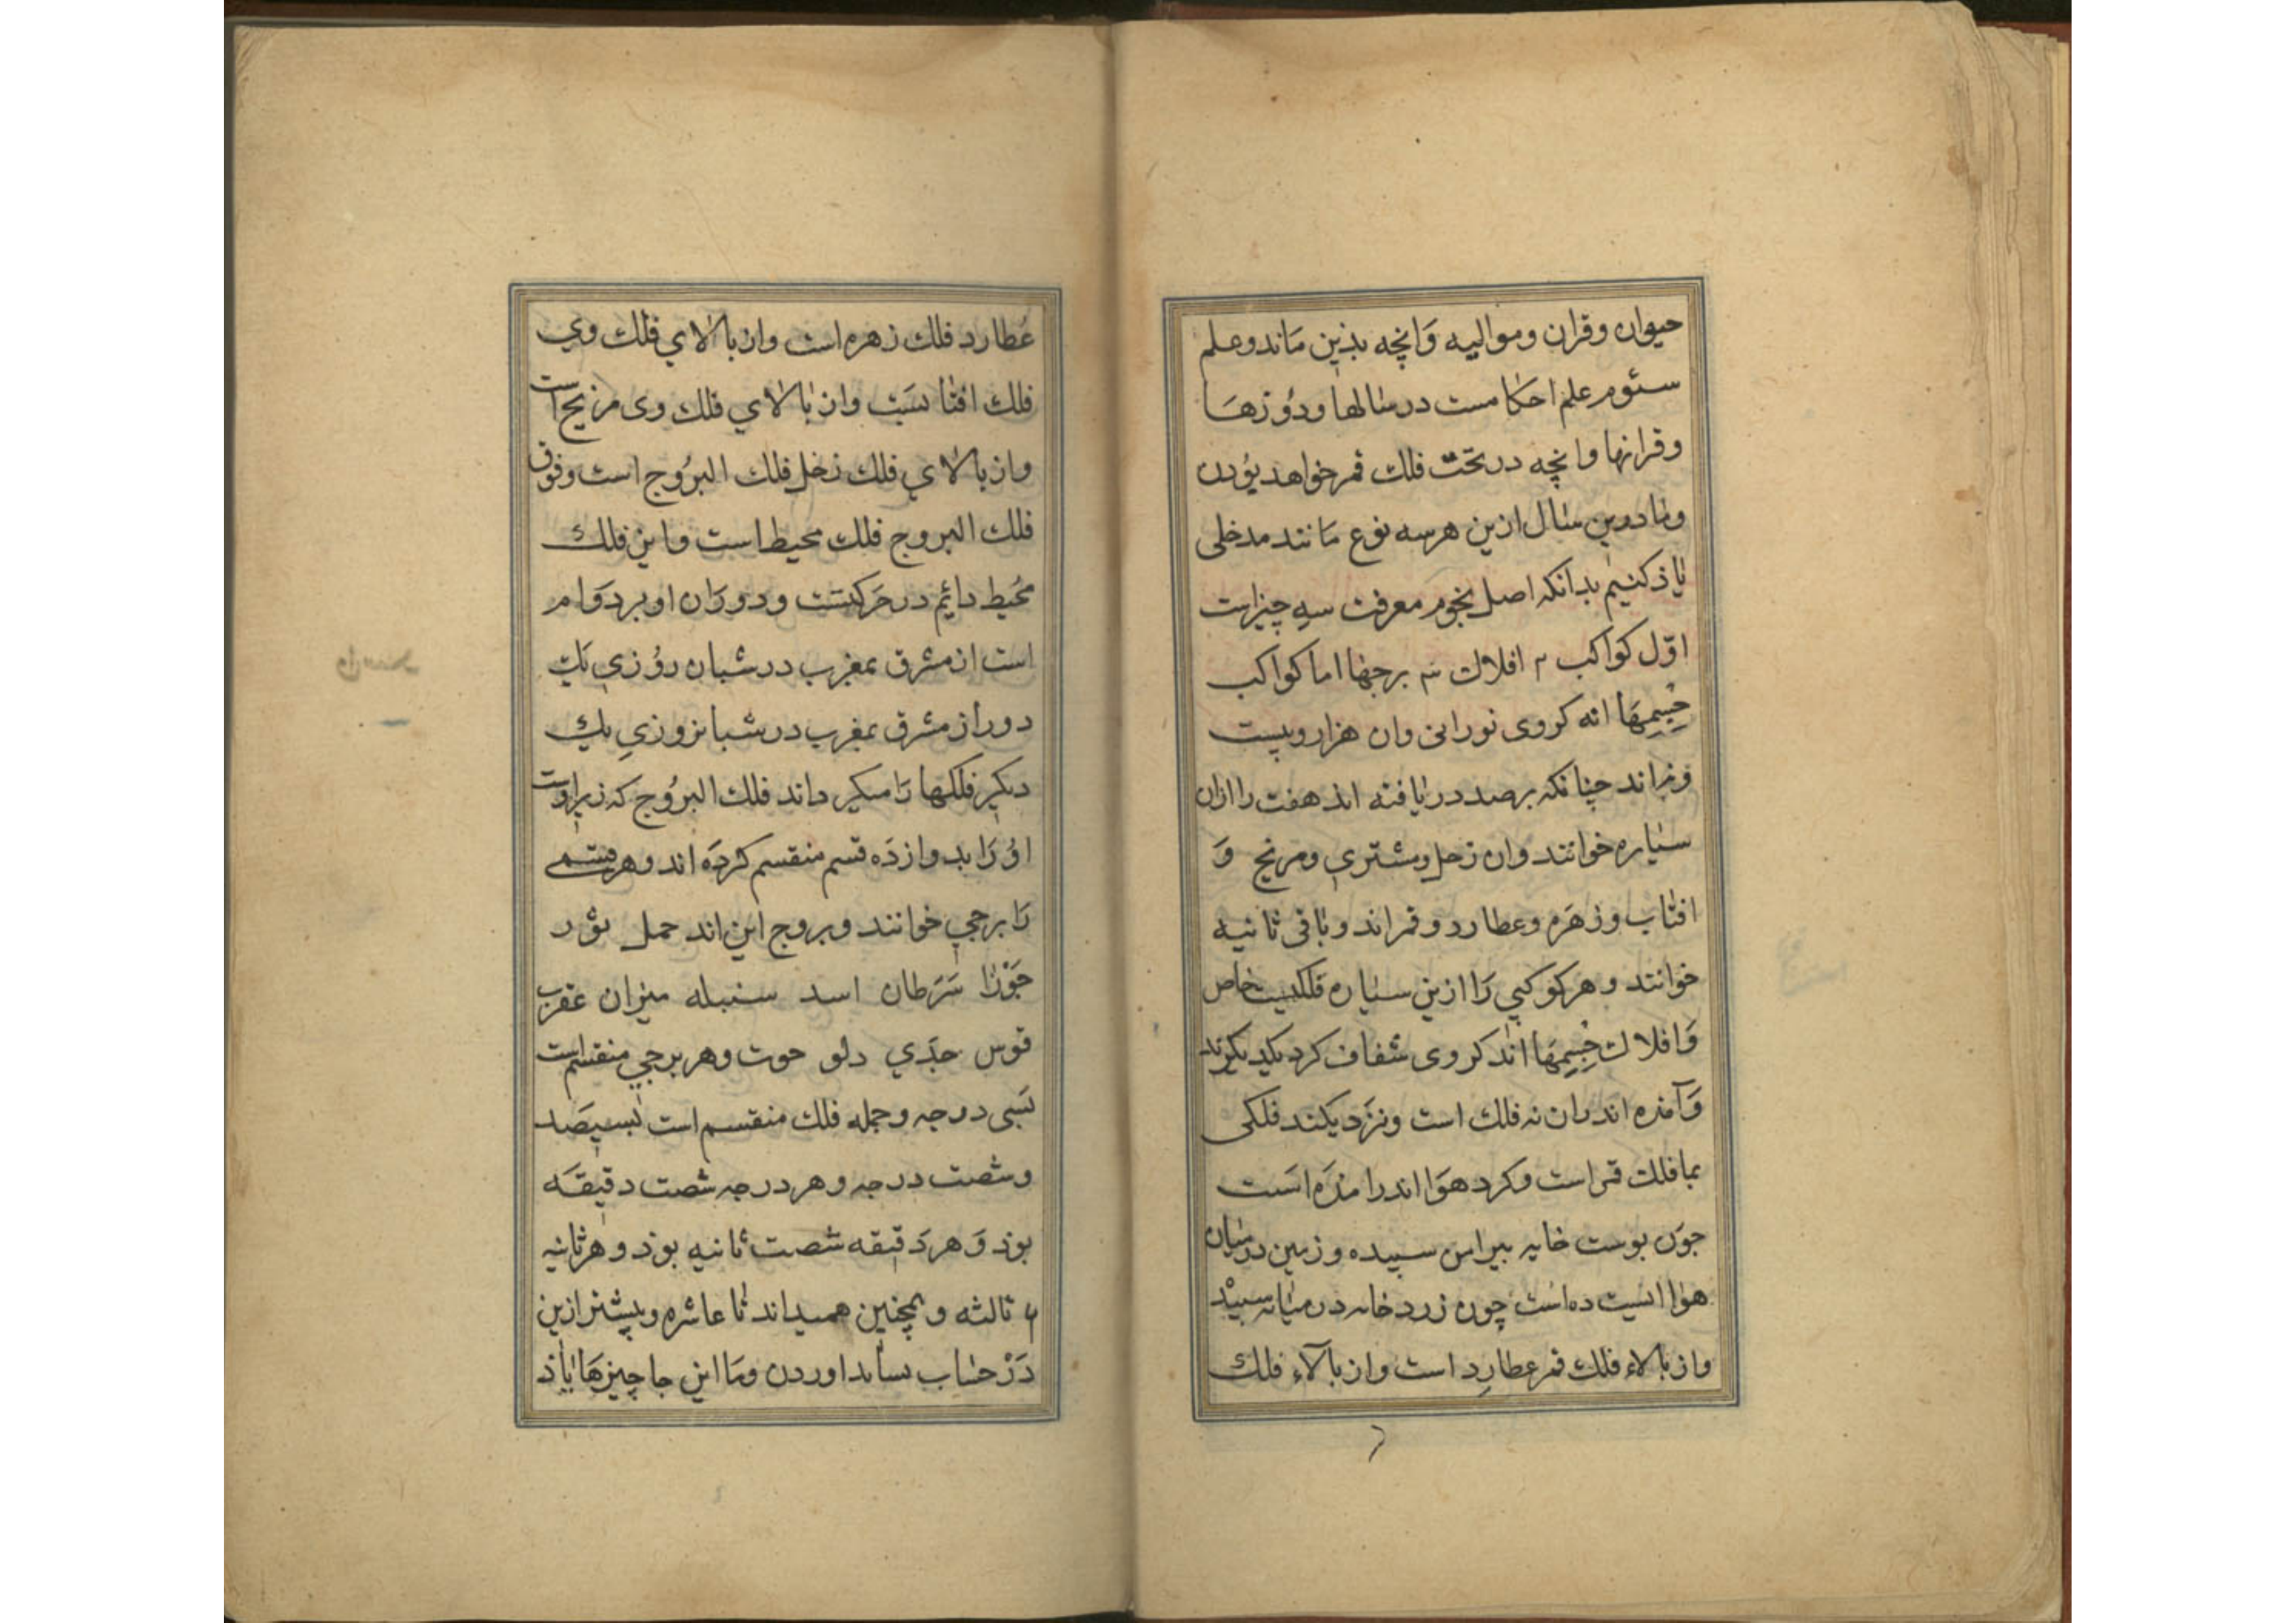 حیوان وقران وموالیه وَانچه بذین مَاند وعلم
سئوم علم احکامست در سالها ودَوُرهَا
وقرانها وانچه در تحت فلك قمر خواهد بوُدن
وما درین سال ازین هر سه نوع مَانند مدخلی
یاذ کنیم بدانکه اصل نجوُم معرفت سه چیز است
اوّل کواکب ۲ افلاك ۳ برجها اما کواکب
جِسِمهَا انه کروی نورانی وان هزار وبیست
ونه اند چنانکه برصد دریافته اند هفت را ازان
سیاره خوانند وان زحل ومشتری ومریخ وَ
افتاب وزهَره وعطارد وقمراند وباقی ثانیه
خوانند وهر کوکبی رَا ازین سیاره فلکیست خاص
وَافلاك جِسِمهَا اند کروی شفاف کرد یکدیکر
وَآمذه اند وان نه فلك است ونزدیکند فلکی
بما فلك قمر است وکرد هوَا اندر امذه است
جوَن پوست خایه پیرامن سپیده وزمین در میان
هوا ایستیده است چون زرد خایه در میانه سپیْد
واز بالاء فلك قمر عطارِد است واز بالآء فلك
عُطارد فلك زهره است واز بالاي فلك وي
فلك افتابست واز بالاي فلك وی مریخ است
واز بالاي فلك زحل فلك البرُوج است وفوق
فلك البروج فلك محیط است واین فلك
مُحیط دائم در حَرکتست ودورَان او بر دوَام
است از مشرق بمغرب در شبان روُزي یك
دور از مشرق بمغرب در شبانروزي یك
دیکر فلکها رَا میکرداند فلك البرُوج که زیر اوست
اوُ رَا بدوازدَه قسم منقسم کردَه اند وهر قسمی
رَا برجي خوانند وبروج این اند حمل ثوُر
جَوْزا سَرَطان اسد سنبله میزان عقرب
قوس جدَي دلو حوت وهر برجي منقسم است
بَسی درجه وجمله فلك منقسم است بسیصَد
وشصت درجه وهر درجه شصت دقیقَه
بوَذ وَهر دَقیقه شصت ثانیه بوَذ وهر ثانیه
۶ ثالثه وهمچنین همیداند تا عاشره وبیشتر ازین
دَرْ حسَاب نیاید اوردن ومَا این جا چیزهَا یاذ